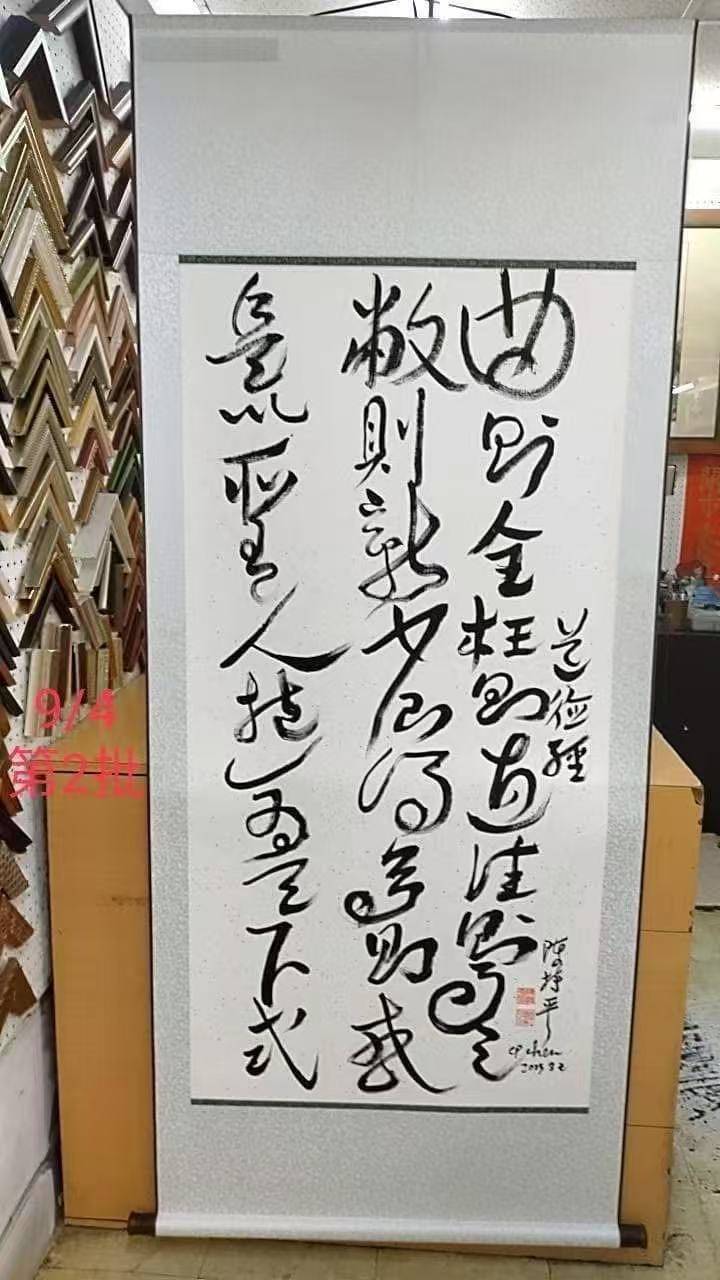 曲則全枉則直洼則盈
敝則新少則得多則惑
是以聖人抱一為天下式
道德經
陳 平
CP chen
9/4
第2批